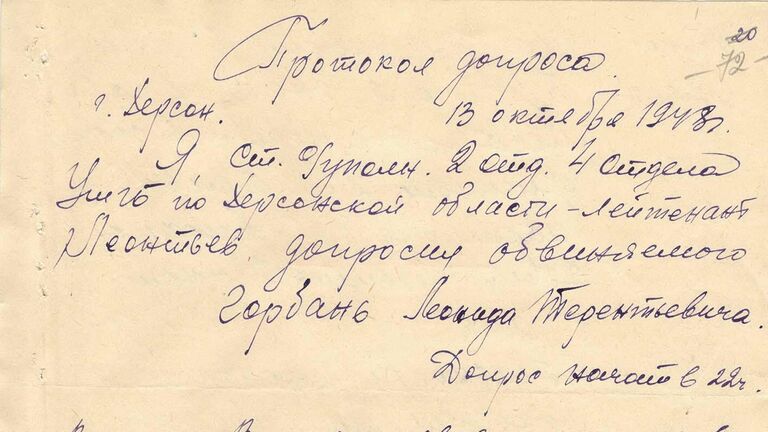 20
-72-
Протокол допроса
г. Херсон. 13 октября 1948г.
Я, ст. Оуполн. 2 отд. 4 отдела
УМГБ по Херсонской области - лейтенант
Леонтьев, допросил обвиняемого
Горбань Леонида Терентьевича.
Допрос начат в 22ч.